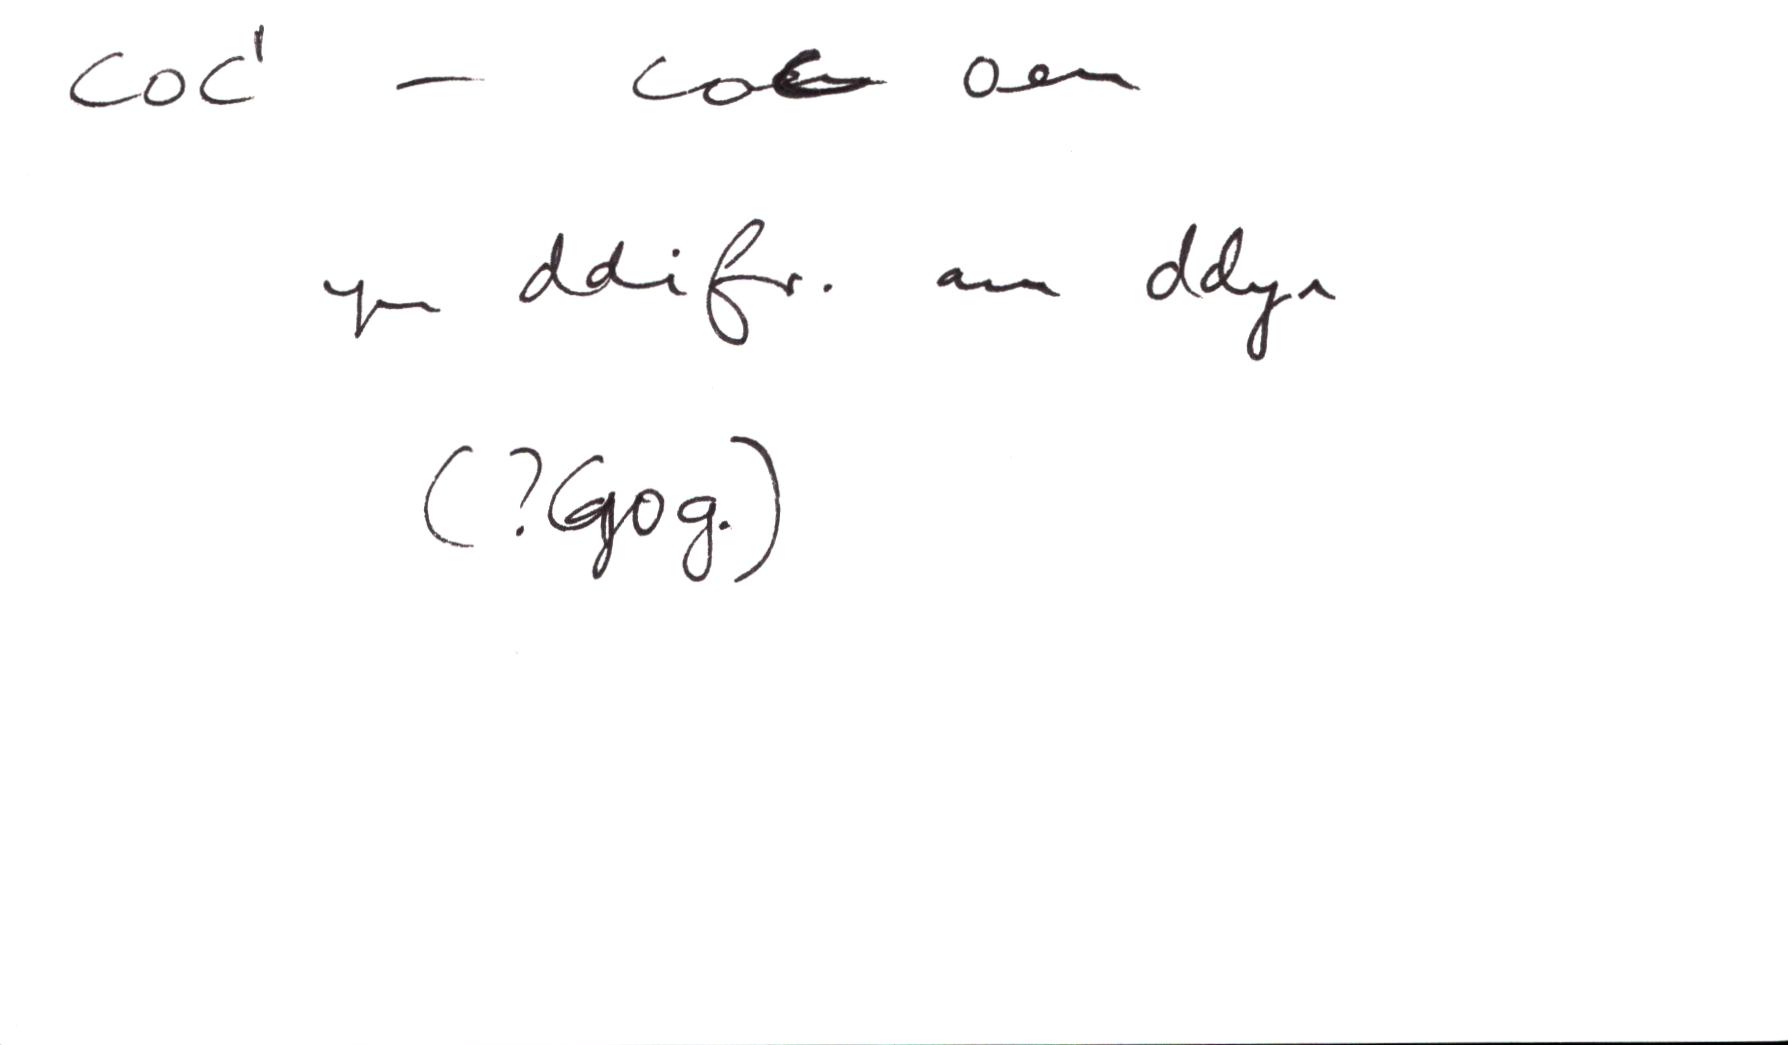 coc¹ – coc oen
yn ddifr. am ddyn
(?Gog.)